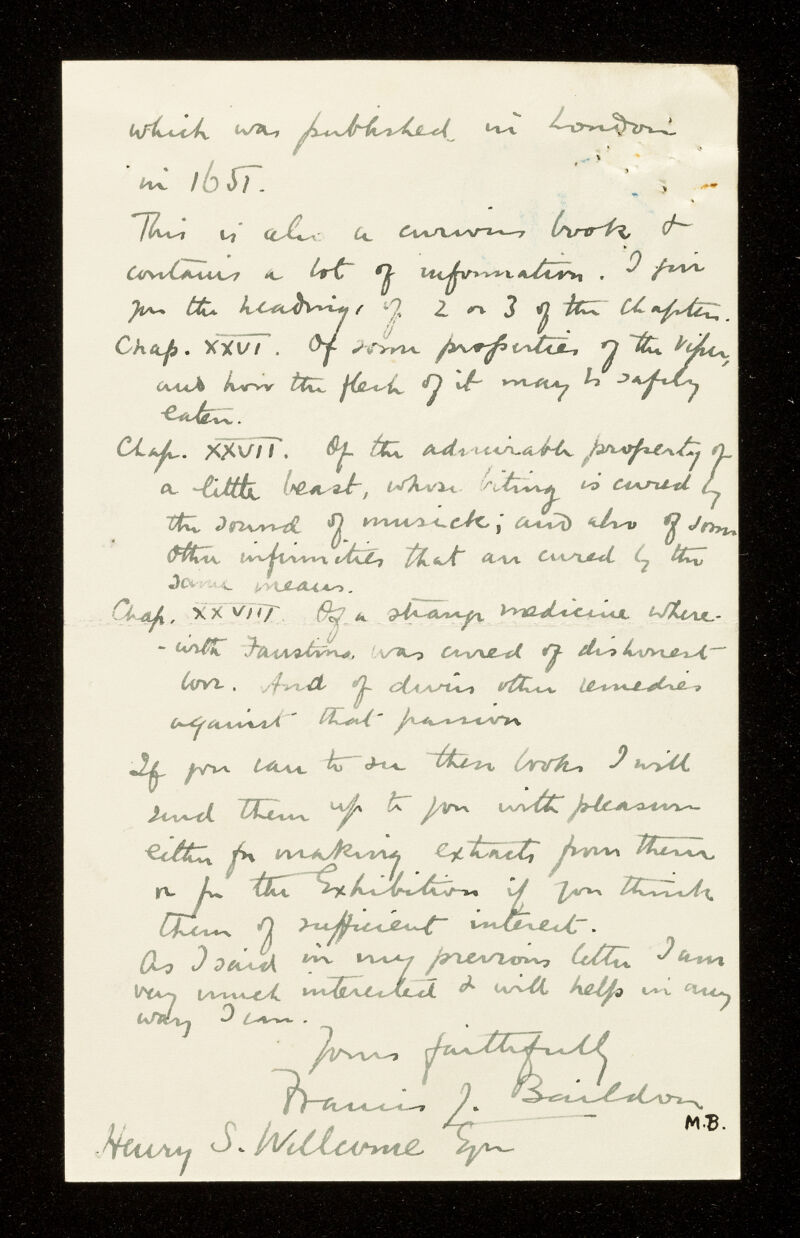 which was published in London
in 1651.
This is also a curious book &
contains a lot of information. I give
you the headings of 2 or 3 of the Chapters.
Chap. XXVI. Of some properties of the Viper,
and how the flesh of it may be safely
eaten.
Chap. XXVII. Of the admirable property of
a little beast, whose biting is cured by
the sound of musick; and also of some
other infirmities that are cured by the
same means.
Chap. XXVIII Of a strange medicine where-
-with Faustina was cured of dishonest
love. And of divers other remedies
against that passion
If you care to see these books I will
send them up to you with pleasure
either for making extracts from them
or for the Exhibition if you think
them of sufficient interest.
As I said in my previous letter I am
very much interested & will help in any
way I can.
Yours faithfully
Francis J. Baildon
M.B.
Henry S. Wellcome Esqr